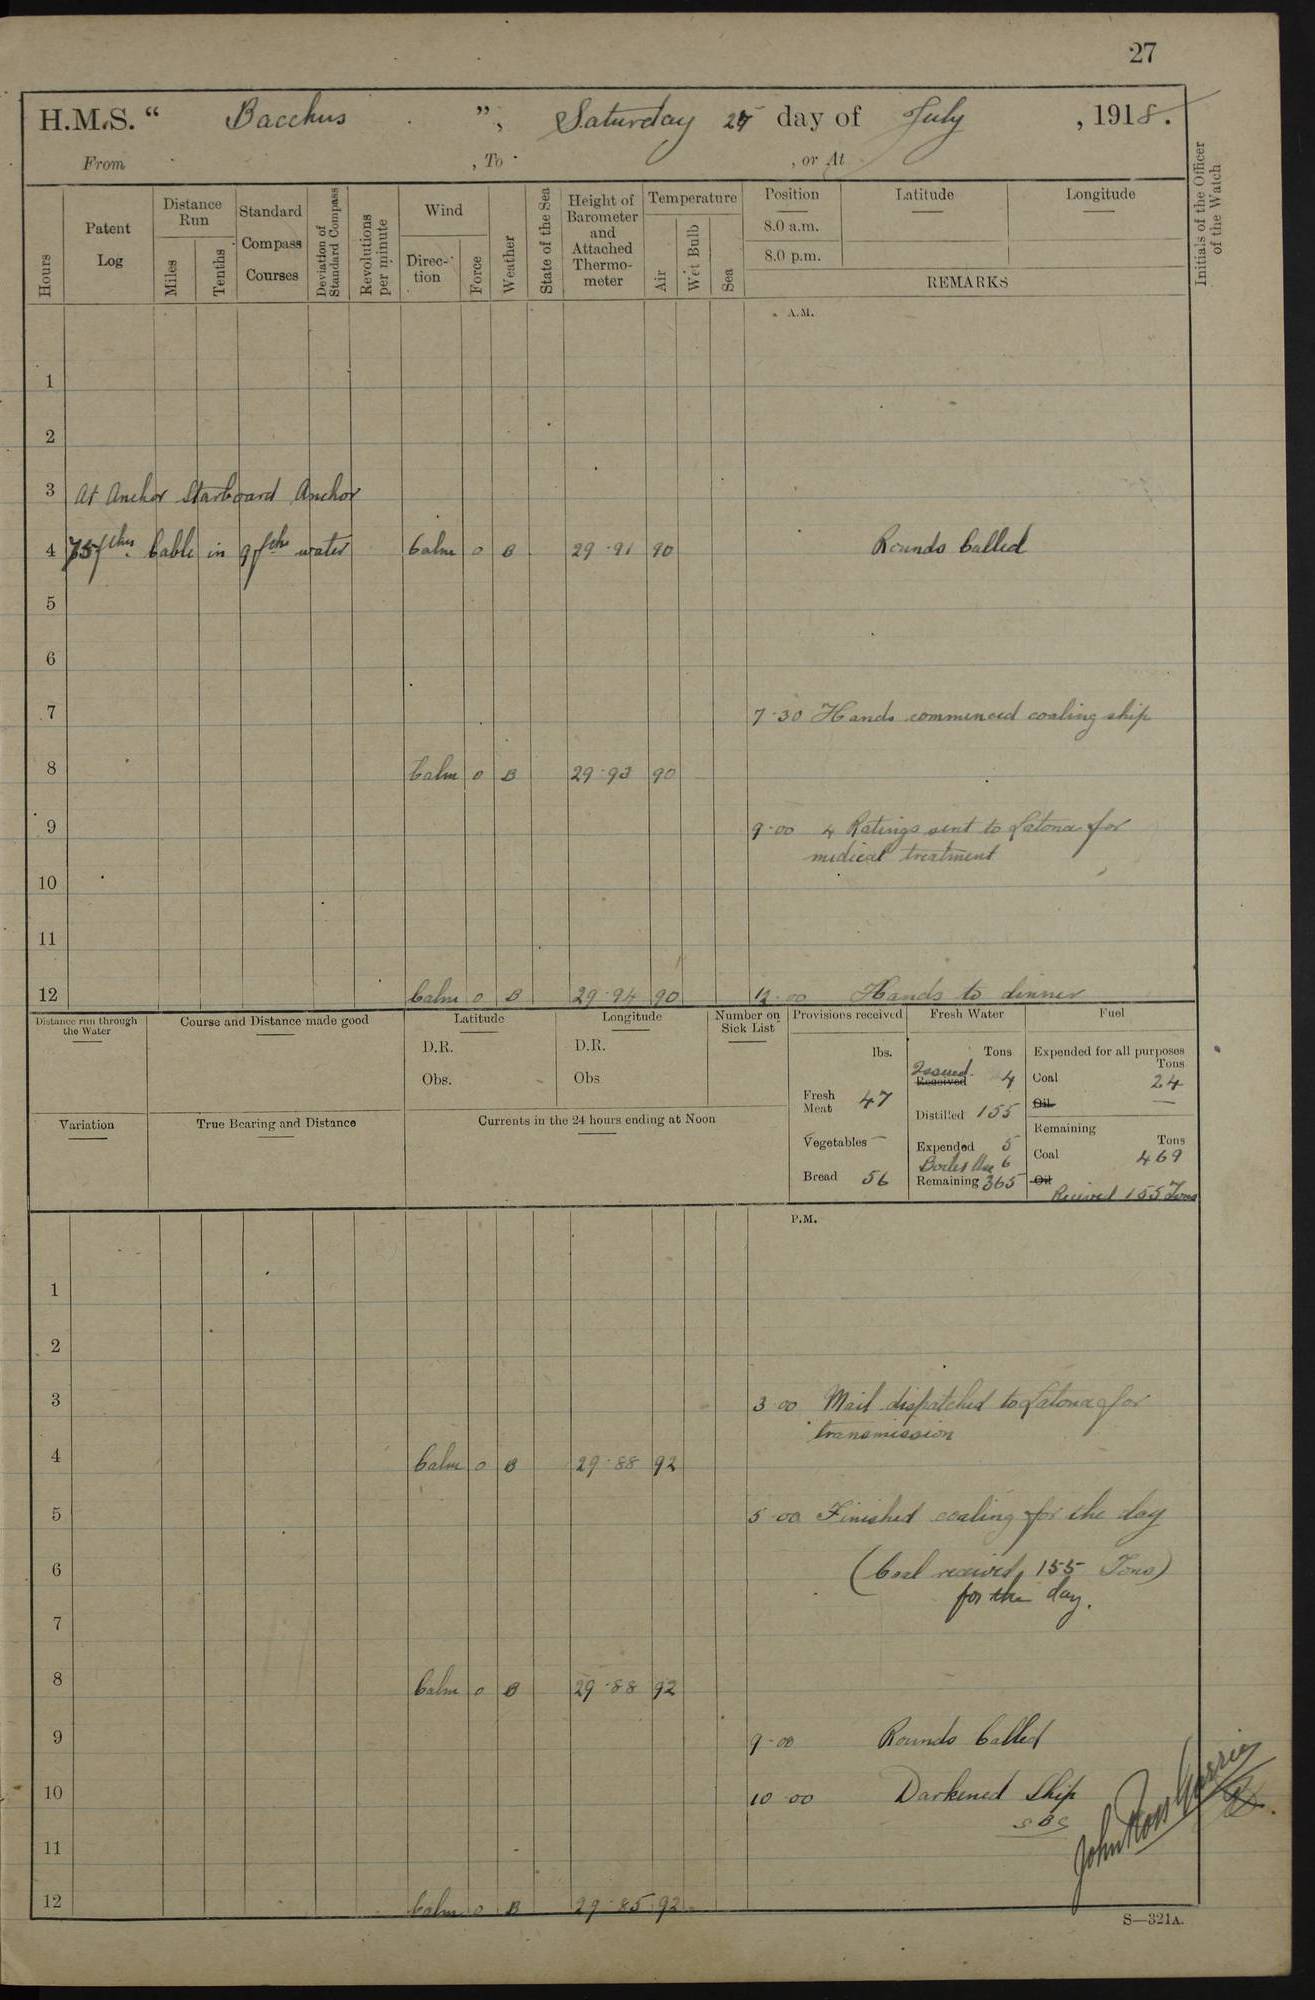 27
H.M.S. “ Bacchus ”, Saturday 27 day of July , 1918.
From , To , or At
Hours
Patent Log
Distance Run
Miles
Tenths
Standard Compass Courses
Deviation of Standard Compass
Revolutions per minute
Wind
Direc-tion
Force
Weather
State of the Sea
Height of Barometer and Attached Thermo-meter
Temperature
Air
Wet Bulb
Sea
Position
8.0 a.m.
8.0 p.m.
Latitude
Longitude
REMARKS
Initials of the Officer of the Watch
A.M.
1
2
3 At Anchor Starboard Anchor
4 75 fthms Cable in 9 fths water Calm 0 B 29.91 90 Rounds Called
5
6
7 7.30 Hands commenced coaling ship
8 Calm 0 B 29.93 90
9 9.00 4 Ratings sent to Latona for
medical treatment
10
11
12 Calm 0 B 29.94 90 12.00 Hands to dinner
Distance run through the Water
Course and Distance made good
Latitude
D.R.
Obs.
Longitude
D.R.
Obs
Number on Sick List
Provisions received
lbs.
Fresh Meat 47
Vegetables —
Bread 56
Fresh Water
Tons
Issued
Received 4
Distilled 155
Expended 5
Boiler Use 6
Remaining 365
Fuel
Expended for all purposes
Tons
Coal 24
Oil —
Remaining
Tons
Coal 469
Oil
Received 155 Tons
Variation
True Bearing and Distance
Currents in the 24 hours ending at Noon
P.M.
1
2
3 3.00 Mail dispatched to Latona for
transmission
4 Calm 0 B 29.88 92
5 5.00 Finished coaling for the day
6 (Coal received, 155 Tons)
for the day.
7
8 Calm 0 B 29.88 92
9 9.00 Rounds Called
10 10.00 Darkened Ship
SBS
John Ross Garrio
11
12 Calm 0 B 29.85 92
S—321A.